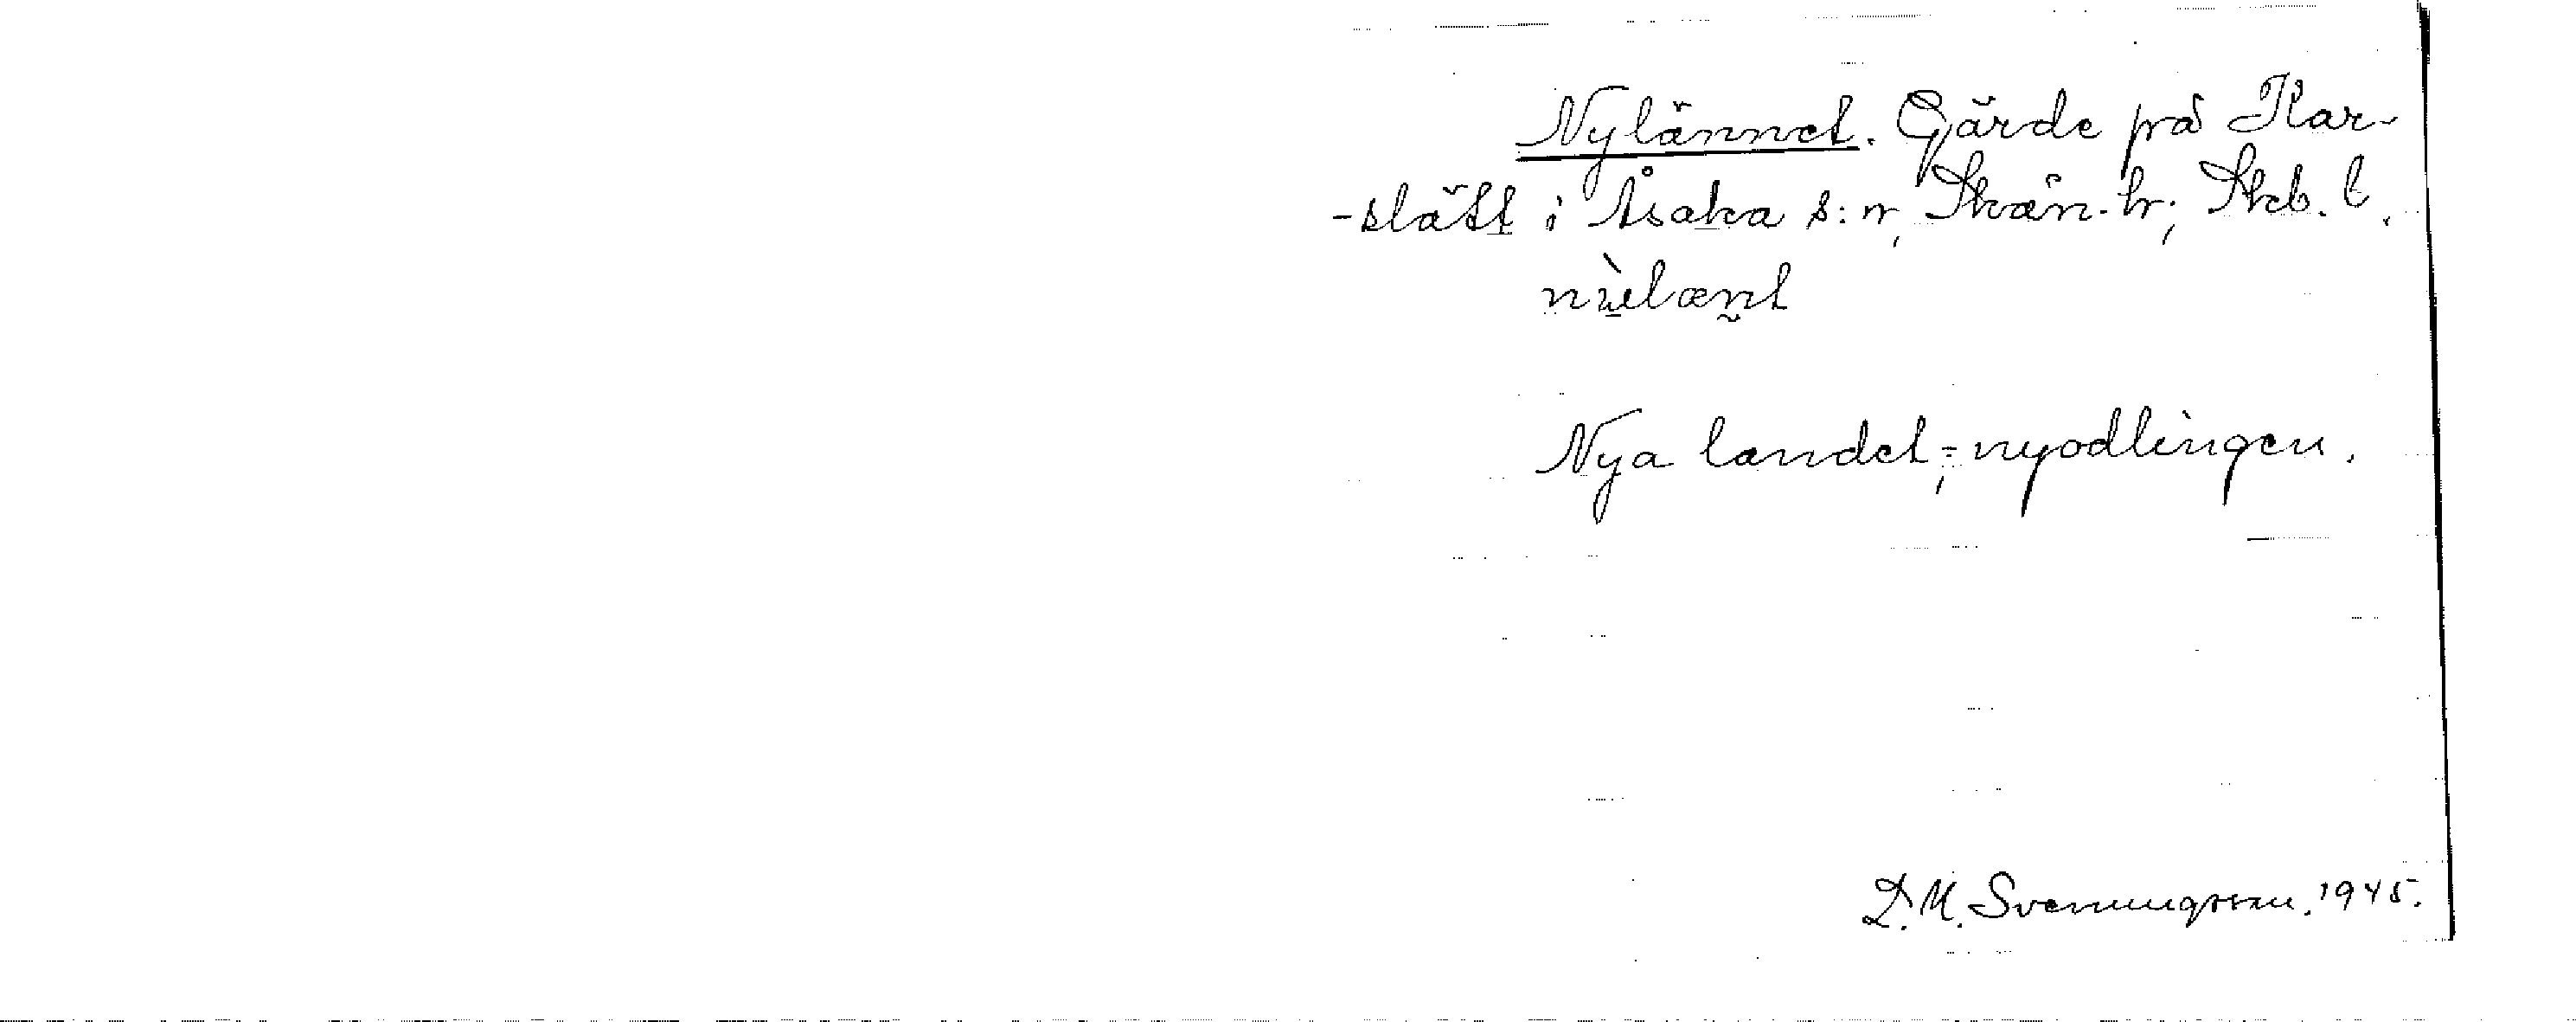 Nylännet. Gärde på Kar-
-slätt i Åsaka s:n, Skån. hr; Skb. l.
Nya landet, = nyodlingen.
D. M. Svenungsson. 1945.